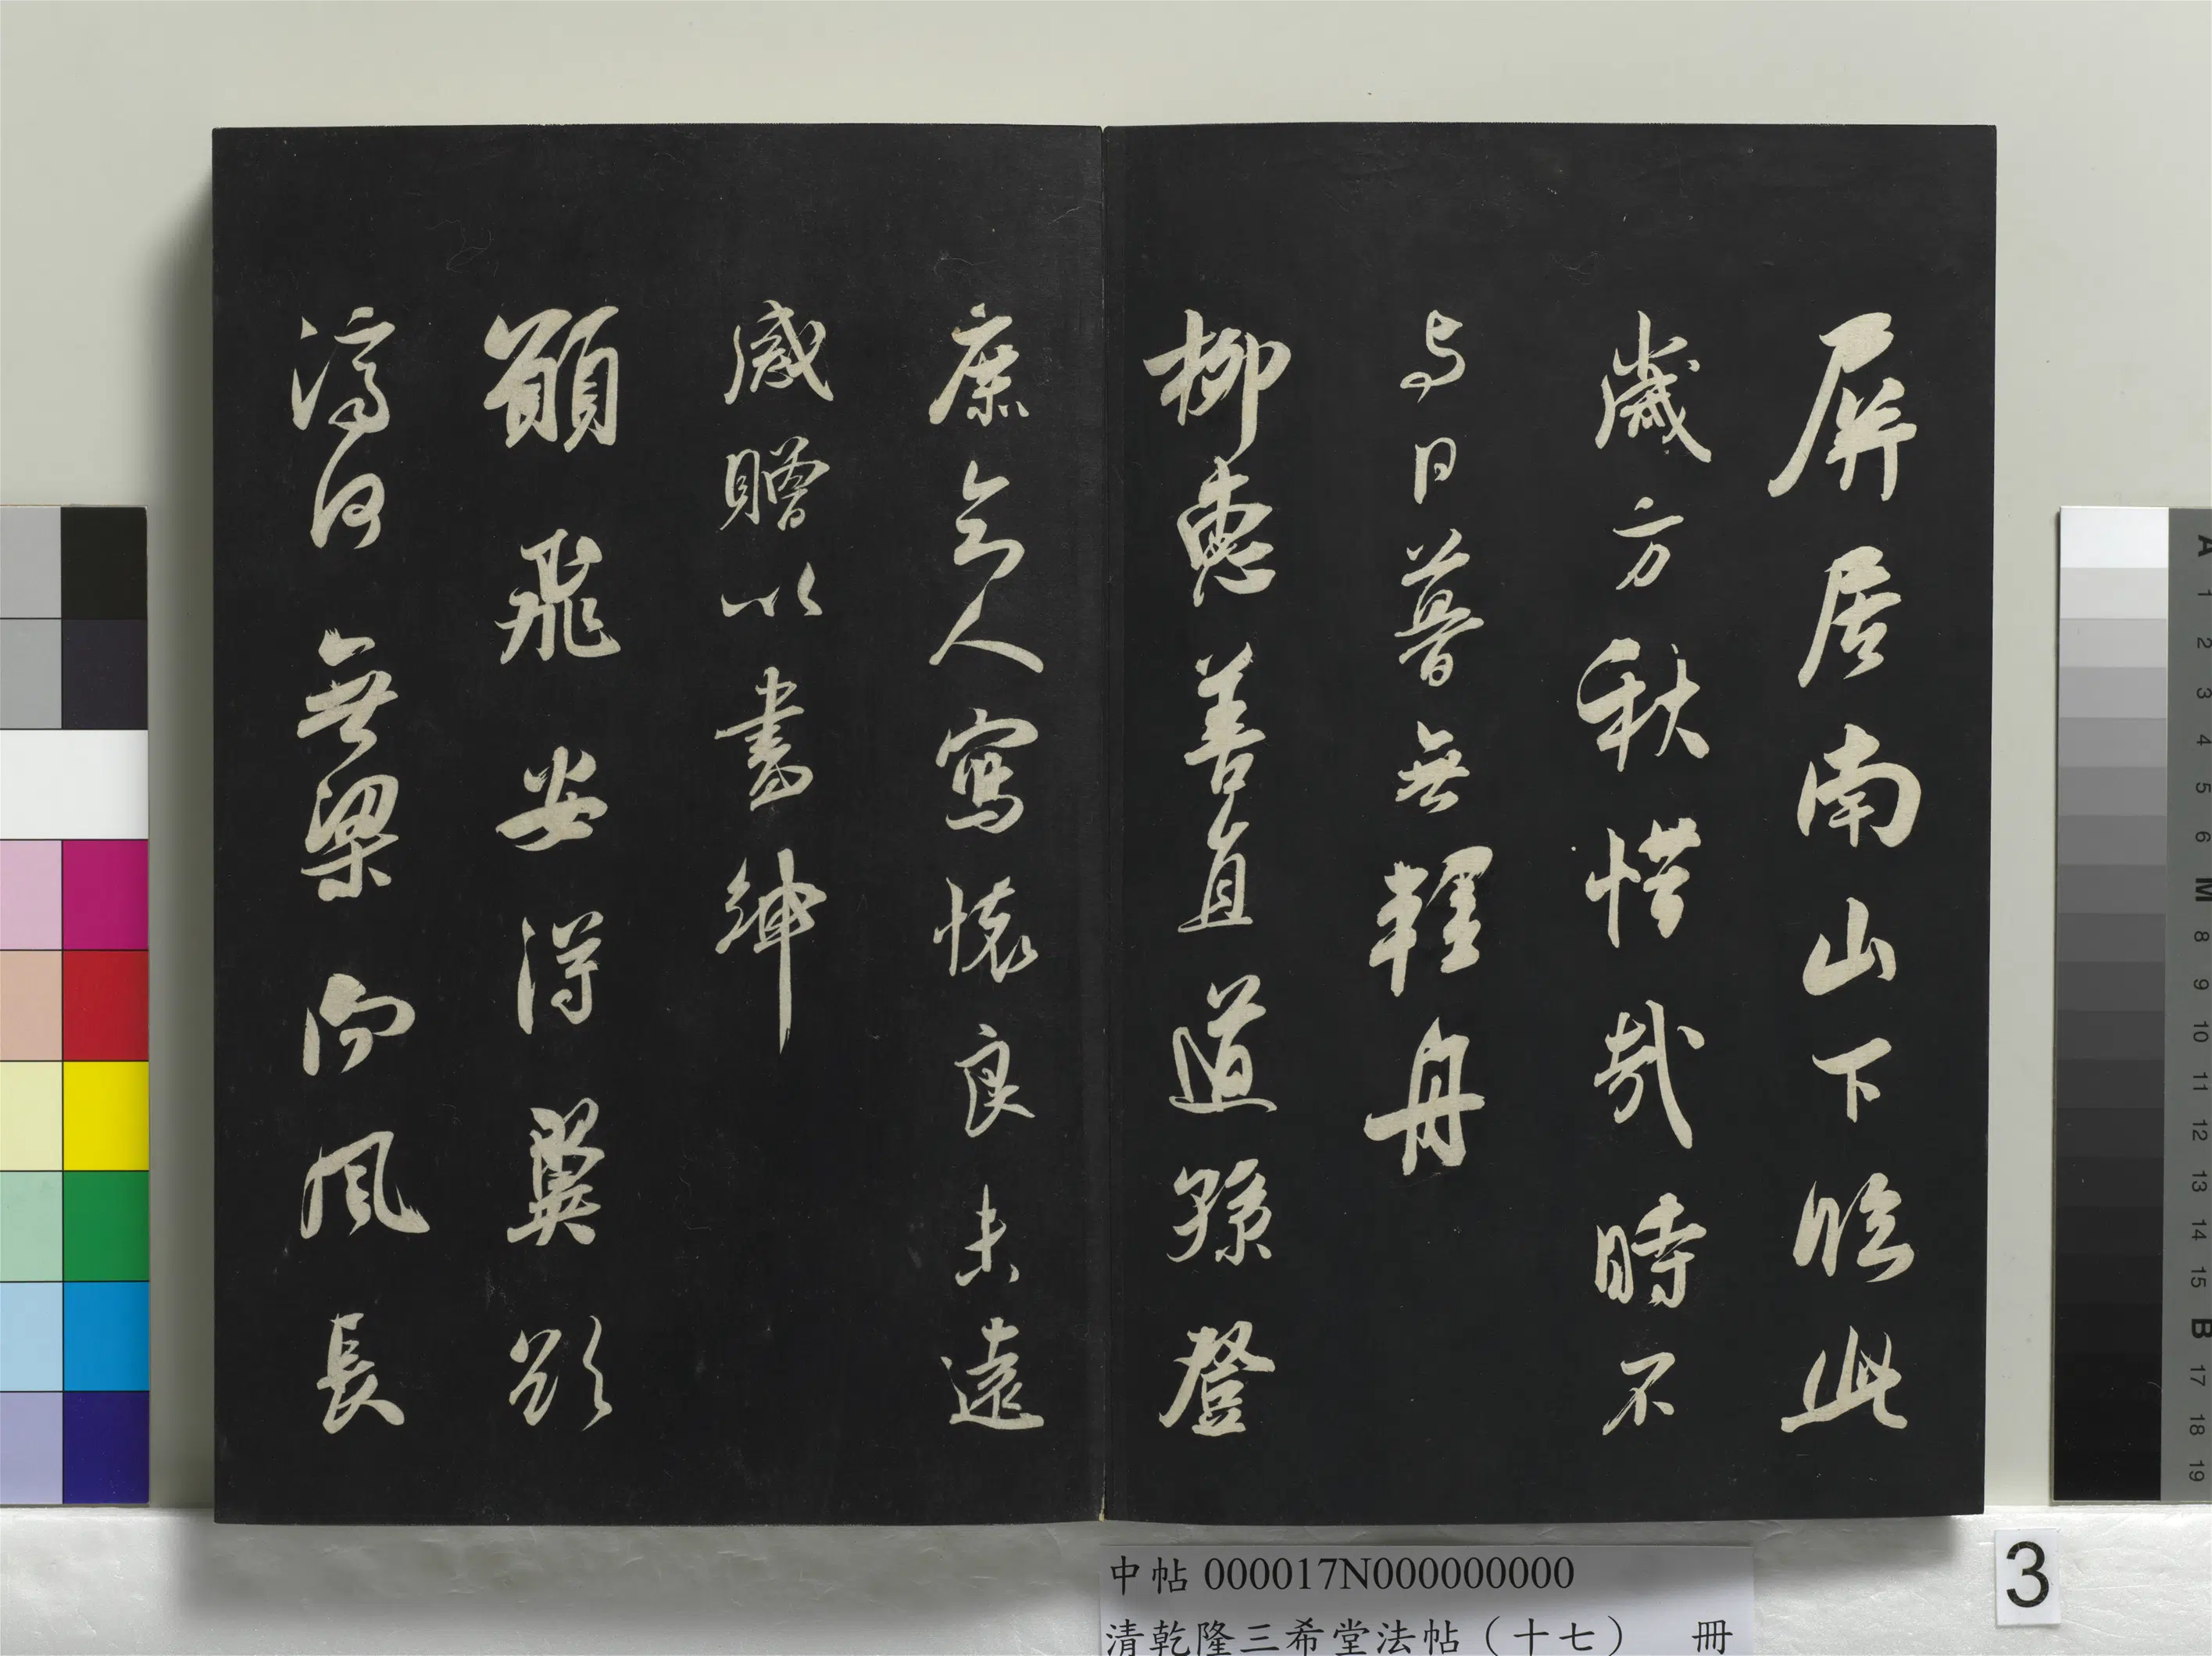 屏居南山下臨此
歲方秋惜哉時不
与日暮無輕舟
柳惠善直道孫登
庶知人寫懷良未遠
感贈以書紳
願飛安得翼欲
濟河無梁向風長
中帖 000017N000000000
清乾隆三希堂法帖（十七） 冊
3
A
1
2
3
4
5
6
M
8
9
10
11
12
13
14
15
B
17
18
19